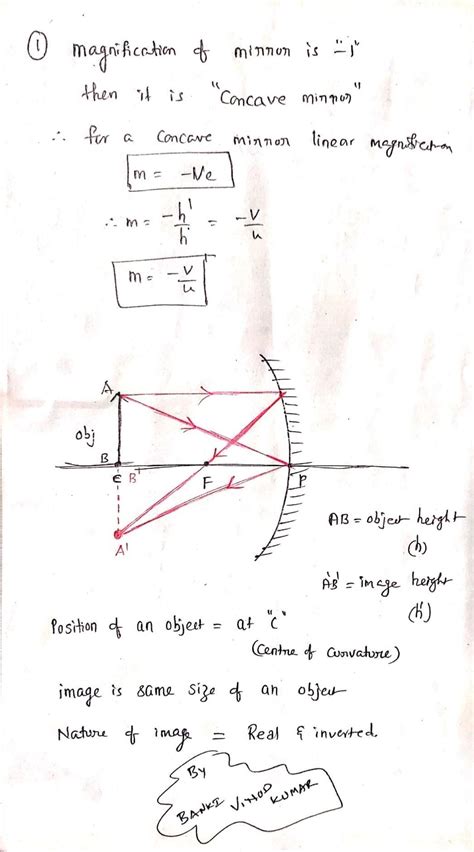 ① magnification of mirror is "-1"
then it is "Concave mirror"
∴ for a concave mirror linear magnification
m = -Ve
∴ m = -h'/h = -v/u
m = -v/u
A
obj
B
C B'
F
P
A'
AB = object height
(h)
A'B' = image height
(h')
Position of an object = at "C"
(Centre of Curvature)
image is same size of an object
Nature of image = Real & inverted.
By
BANKI VINOD KUMAR